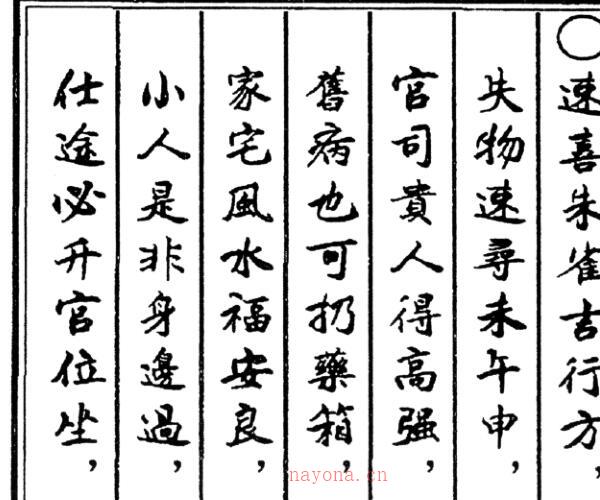 ○速喜朱雀吉行方，
失物速尋未午申，
官司貴人得高強，
舊病也可扔藥箱，
家宅風水福安良，
小人是非身邊過，
仕途必升官位坐，
nayona.cn